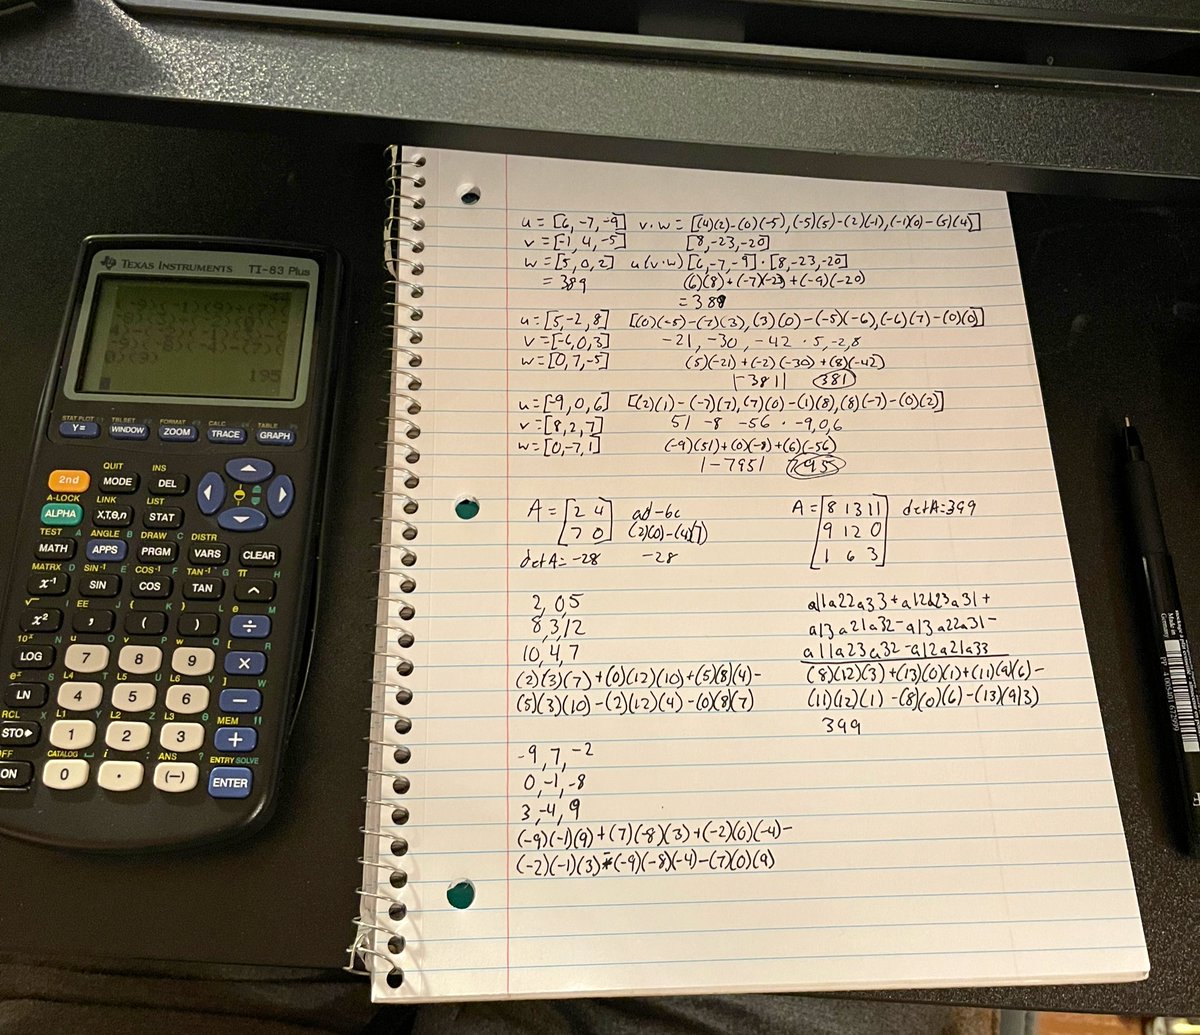 TEXAS INSTRUMENTS TI-83 Plus
195
STAT PLOT TBLSET FORMAT CALC TABLE
Y= WINDOW ZOOM TRACE GRAPH
QUIT INS
2nd MODE DEL
A-LOCK LINK LIST
ALPHA X,T,θ,n STAT
TEST A ANGLE B DRAW C DISTR
MATH APPS PRGM VARS CLEAR
MATRX D SIN⁻¹ E COS⁻¹ F TAN⁻¹ G π H
x⁻¹ SIN COS TAN ^
√ I EE J { K } L e M
x² , ( ) ÷
10ˣ N u O v P w Q [ R
LOG 7 8 9 ×
eˣ S L4 T L5 U L6 V ] W
LN 4 5 6 −
RCL X L1 Y L2 Z L3 θ MEM "
STO▸ 1 2 3 +
OFF CATALOG i : ANS ? ENTRY SOLVE
ON 0 . (−) ENTER
u = [6, -7, -9] v·w = [(4)(2)-(0)(-5), (-5)(5)-(2)(-1), (-1)(0)-(5)(4)]
v = [-1, 4, -5] [8, -23, -20]
w = [5, 0, 2] u(v·w) [6, -7, -9]·[8, -23, -20]
= 389 (6)(8)+(-7)(-23)+(-9)(-20)
= 389
u = [5, -2, 8] [(0)(-5)-(7)(3), (3)(0)-(-5)(-6), (-6)(7)-(0)(0)]
v = [-6, 0, 3] -21, -30, -42 · 5, -2, 8
w = [0, 7, -5] (5)(-21)+(-2)(-30)+(8)(-42)
|-381| 381
u = [-9, 0, 6] [(2)(1)-(-7)(7), (7)(0)-(1)(8), (8)(-7)-(0)(2)]
v = [8, 2, 7] 51 -8 -56 · -9, 0, 6
w = [0, -7, 1] (-9)(51)+(0)(-8)+(6)(-56)
|-795| 795
A = [2 4 ad-bc
7 0] (2)(0)-(4)(7)
detA = -28 -28
A = [8 13 11 detA = 399
9 12 0
1 6 3]
2, 0, 5
8, 3, 12
10, 4, 7
(2)(3)(7)+(0)(12)(10)+(5)(8)(4)-
(5)(3)(10)-(2)(12)(4)-(0)(8)(7)
a11a22a33+a12a23a31+
a13a21a32-a13a22a31-
a11a23a32-a12a21a33
(8)(12)(3)+(13)(0)(1)+(11)(9)(6)-
(11)(12)(1)-(8)(0)(6)-(13)(9)(3)
399
-9, 7, -2
0, -1, -8
3, -4, 9
(-9)(-1)(9)+(7)(-8)(3)+(-2)(0)(-4)-
(-2)(-1)(3)-(-9)(-8)(-4)-(7)(0)(9)
Made in
Germany